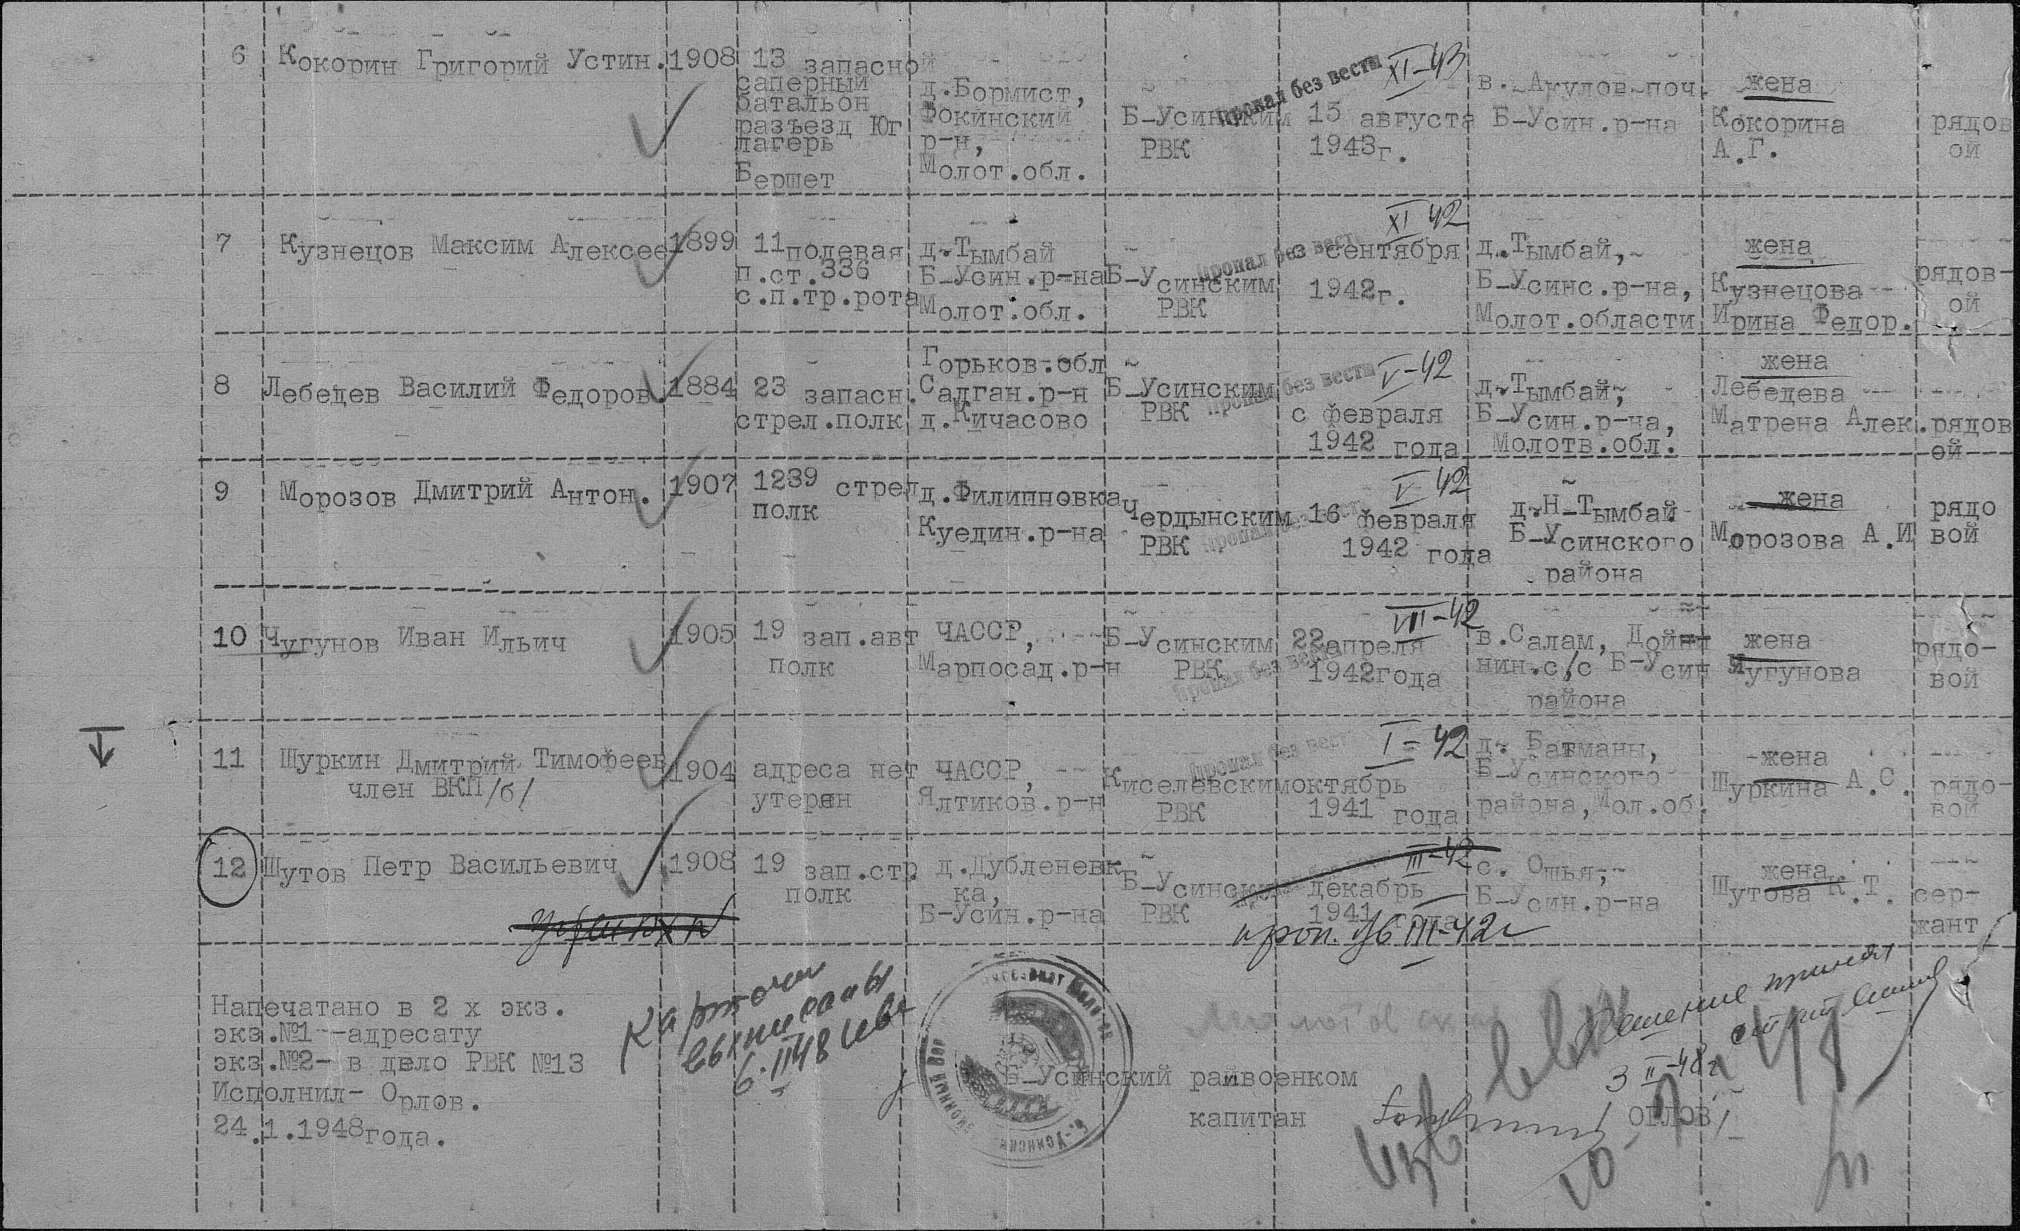 6 Кокорин Григорий Устин. 1908 13 запасной
саперный
батальон
разъезд Юг
лагерь
Бершет
д.Бормист,
Фокинский
р-н,
Молот.обл.
Б-Усинским
РВК
Пропал без вести XI-43
15 августа
1943г.
в. Акулов поч.
Б-Усин.р-на
жена
Кокорина
А.Г.
рядов
ой
7 Кузнецов Максим Алексее 1899 11 полевая
п.ст.336
с.п.тр.рота
д.Тымбай
Б-Усин.р-на
Молот.обл.
Б-Усинским
РВК
Пропал без вест XI 42
сентября
1942г.
д.Тымбай,
Б-Усинс.р-на,
Молот.области
жена
Кузнецова
Ирина Федор.
рядов-
ой
8 Лебедев Василий Федоров. 1884 23 запасн.
стрел.полк
Горьков.обл
Салган.р-н
д.Кичасово
Б-Усинским
РВК
Пропал без вести V-42
с февраля
1942 года
д.Тымбай,
Б-Усин.р-на,
Молотв.обл.
жена
Лебедева
Матрена Алек.
рядов
ой
9 Морозов Дмитрий Антон. 1907 1239 стрел
полк
д.Филипповка
Куедин.р-на
Чердынским
РВК
Пропал без вест V 42
16 февраля
1942 года
д.Н-Тымбай
Б-Усинского
района
жена
Морозова А.И
рядо
вой
10 Чугунов Иван Ильич 1905 19 зап.авт
полк
ЧАССР,
Марпосад.р-н
Б-Усинским
РВК
Пропал без вест VIII-42
22 апреля
1942 года
в.Салам,
нин.с/с Б-Усин
района
жена
Чугунова
рядо-
вой
11 Шуркин Дмитрий Тимофеев
член ВКП/б/
1904 адреса нет
утерян
ЧАССР,
Ялтиков.р-н
Киселевским
РВК
Пропал без вест I-42
октябрь
1941 года
д. Батманы,
Б-Усинского
района,Мол.об.
жена
Шуркина А.С.
рядо-
вой
12 Шутов Петр Васильевич 1908 19 зап.стр
полк
д.Дубленевк
ка,
Б-Усин.р-на
Б-Усински
РВК
III-42
декабрь
1941 года
проп. III-42г
с. Ошья,
Б-Усин.р-на
жена
Шутова К.Т.
сер-
жант
Напечатано в 2 х экз.
экз.№1 -адресату
экз.№2- в дело РВК №13
Исполнил- Орлов.
24.1.1948года.
Карточки
выписаны
6.II 48
Б-Усинский райвоенком
капитан /ОРЛОВ/
решение принял
3 II-48г